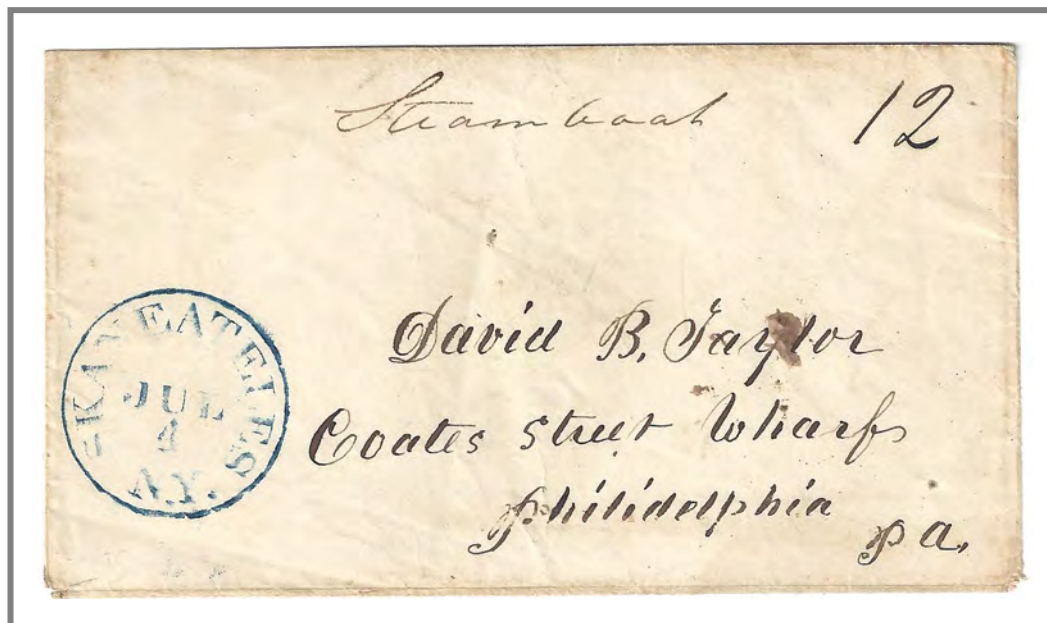 Steamboat 12
SKANEATELES
JUL
4
N.Y.
David B. Taylor
Coates street wharf
Philidelphia
pa.